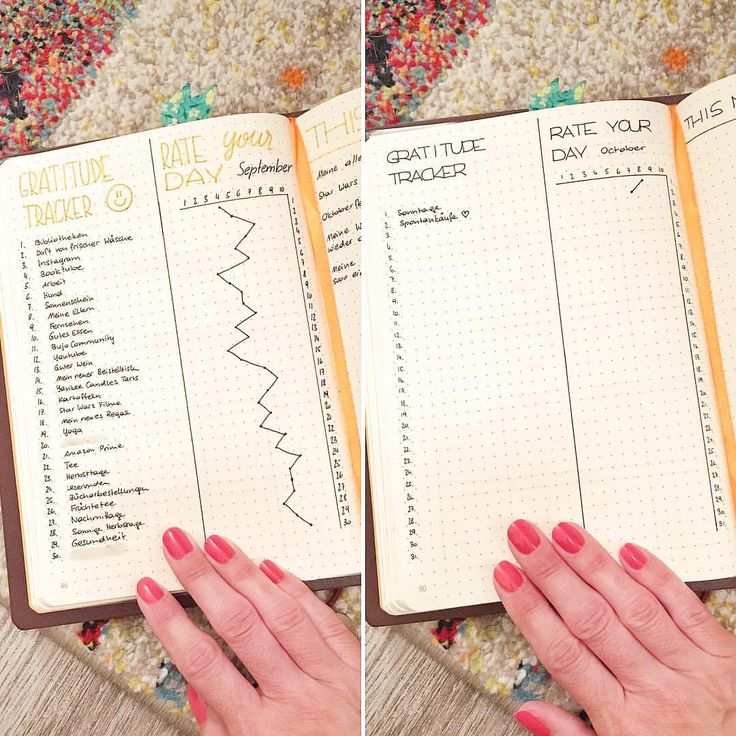 GRATITUDE
TRACKER
1. Bibliotheken
2. Duft von frischer Wäsche
3. Instagram
4. Booktube
5. Arbeit
6. Hund
7. Sonnenschein
8. Meine Eltern
9. Fernsehen
10. Gutes Essen
11. Bujo Community
12. Youtube
13. Guter Wein
14. Mein neuer Beistelltisch
15. Yankee Candles Tarts
16. Kartoffeln
17. Star Wars Filme
18. Mein neues Regal
19. Yoga
20.
21. Amazon Prime
22. Tee
23. Herbsttage
24. Leserunden
25. Bücherbestellungen
26. Früchtetee
27. Nachmittage
28. Sonnige Herbsttage
29. Gesundheit
30.
46
RATE your
DAY September
1 2 3 4 5 6 7 8 9 10
1
2
3
4
5
6
7
8
9
10
11
12
13
14
15
16
17
18
19
20
21
22
23
24
25
26
27
28
29
30
THIS
Meine
Star Wars
Meine
wieder
Meine
GRATITUDE
TRACKER
1. Sonntage
2. Spontankäufe ♡
3.
4.
5.
6.
7.
8.
9.
10.
11.
12.
13.
14.
15.
16.
17.
18.
19.
20.
21.
22.
23.
24.
25.
26.
27.
28.
29.
30.
31.
90
RATE YOUR
DAY October
1 2 3 4 5 6 7 8 9 10
1
2
3
4
5
6
7
8
9
10
11
12
13
14
15
16
17
18
19
20
21
22
23
24
25
26
27
28
29
30
31
THIS